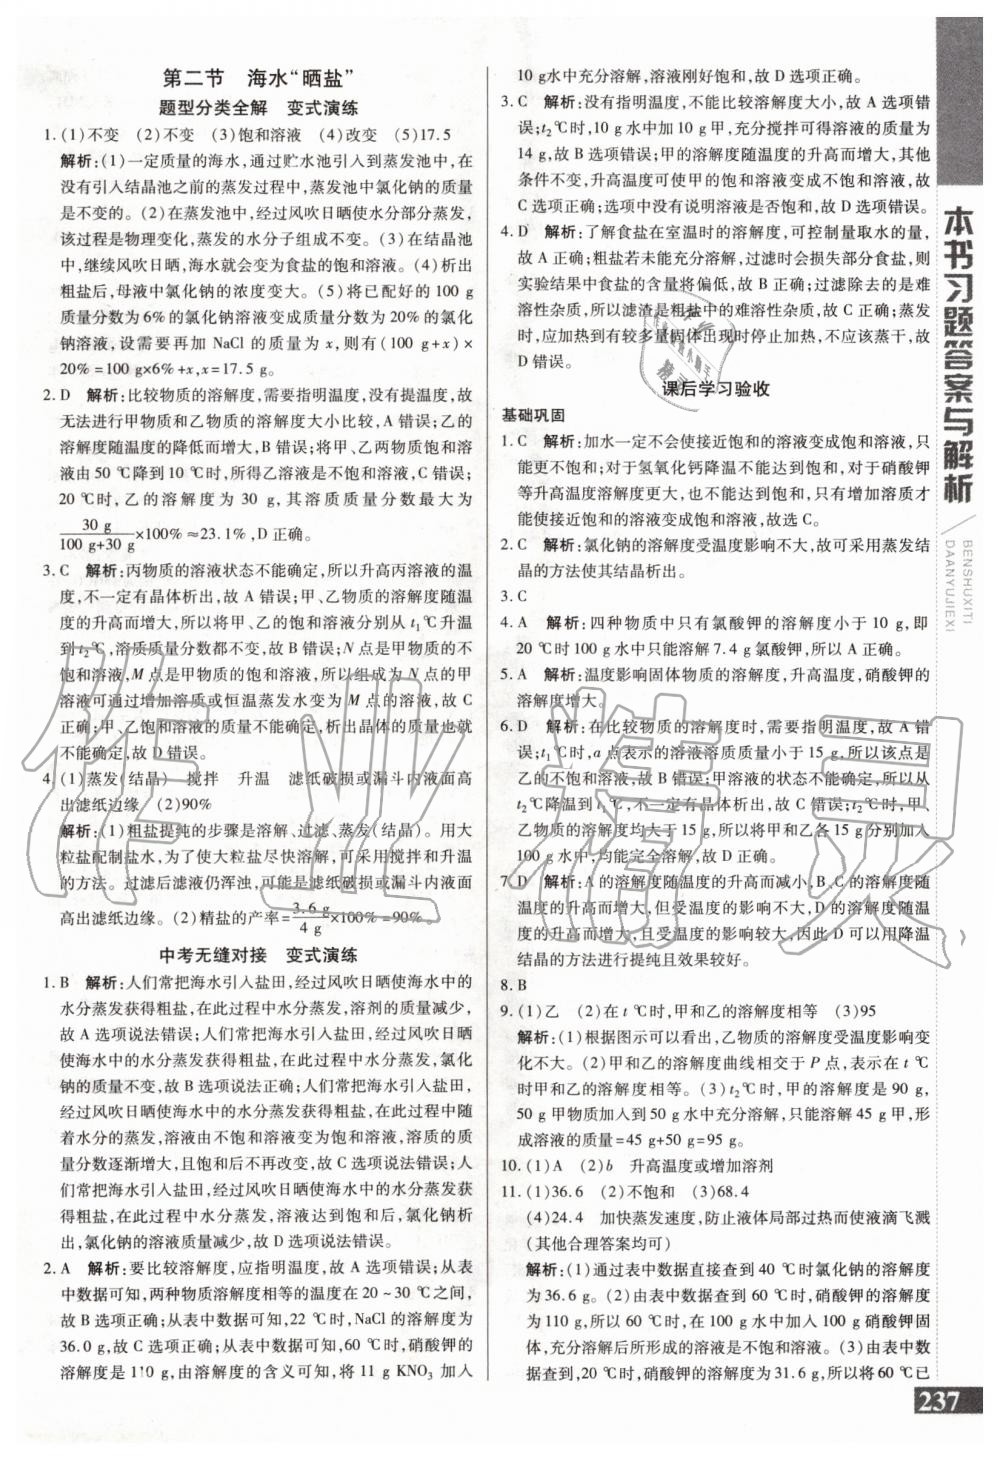 第二节 海水“晒盐”
题型分类全解 变式演练
1. (1)不变 (2)不变 (3)饱和溶液 (4)改变 (5)17.5
解析:(1)一定质量的海水,通过贮水池引入到蒸发池中,在
没有引入结晶池之前的蒸发过程中,蒸发池中氯化钠的质量
是不变的。(2)在蒸发池中,经过风吹日晒使水分部分蒸发,
该过程是物理变化,蒸发的水分子组成不变。(3)在结晶池
中,继续风吹日晒,就会变为食盐的饱和溶液。(4)析出
粗盐后,母液中氯化钠的浓度变大。(5)将已配好的100 g
质量分数为6%的氯化钠溶液变成质量分数为20%的氯化
钠溶液,设需要再加 NaCl 的质量为 x,则有(100 g+x)×
20%=100 g×6%+x,x=17.5 g。
2. D 解析:比较物质的溶解度,需要指明温度,没有提温度,故
无法进行甲物质和乙物质的溶解度大小比较,A 错误;乙的
溶解度随温度的降低而增大,B 错误;将甲、乙两物质饱和溶
液由50 ℃降到10 ℃时,所得乙溶液是不饱和溶液,C 错误;
20 ℃时,乙的溶解度为 30 g,其溶质质量分数最大为
30 g/(100 g+30 g)×100%≈23.1%,D 正确。
3. C 解析:丙物质的溶液状态不能确定,所以升高丙溶液的温
度,不一定有晶体析出,故 A 错误;甲、乙物质的溶解度随温
度的升高而增大,所以将甲、乙的饱和溶液分别从 t₁℃升温
到 t₂℃,溶质质量分数都不变,故 B 错误;N 点是甲物质的不
饱和溶液,M 点是甲物质的饱和溶液,所以组成为 N 点的甲
溶液可通过增加溶质或恒温蒸发水变为 M 点的溶液,故 C
正确;甲、乙饱和溶液的质量不能确定,析出晶体的质量也就
不能确定,故 D 错误。
4. (1)蒸发(结晶) 搅拌 升温 滤纸破损或漏斗内液面高
出滤纸边缘 (2)90%
解析:(1)粗盐提纯的步骤是溶解、过滤、蒸发(结晶)。用大
粒盐配制盐水,为了使大粒盐尽快溶解,可采用搅拌和升温
的方法。过滤后滤液仍浑浊,可能是滤纸破损或漏斗内液面
高出滤纸边缘。(2)精盐的产率=3.6 g/4 g×100%=90%。
中考无缝对接 变式演练
1. B 解析:人们常把海水引入盐田,经过风吹日晒使海水中的
水分蒸发获得粗盐,在此过程中水分蒸发,溶剂的质量减少,
故 A 选项说法错误;人们常把海水引入盐田,经过风吹日晒
使海水中的水分蒸发获得粗盐,在此过程中水分蒸发,氯化
钠的质量不变,故 B 选项说法正确;人们常把海水引入盐田,
经过风吹日晒使海水中的水分蒸发获得粗盐,在此过程中随
着水分的蒸发,溶液由不饱和溶液变为饱和溶液,溶质的质
量分数逐渐增大,且饱和后不再改变,故 C 选项说法错误;人
们常把海水引入盐田,经过风吹日晒使海水中的水分蒸发获
得粗盐,在此过程中水分蒸发,溶液达到饱和后,氯化钠析
出,氯化钠的溶液质量减少,故 D 选项说法错误。
2. A 解析:要比较溶解度,应指明温度,故 A 选项错误;从表
中数据可知,两种物质溶解度相等的温度在 20~30 ℃之间,
故 B 选项正确;从表中数据可知,22 ℃时,NaCl 的溶解度为
36.0 g,故 C 选项正确;从表中数据可知,60 ℃时,硝酸钾的
溶解度是 110 g,由溶解度的含义可知,将 11 g KNO₃ 加入
10 g水中充分溶解,溶液刚好饱和,故 D 选项正确。
3. C 解析:没有指明温度,不能比较溶解度大小,故 A 选项错
误;t₂℃时,10 g 水中加 10 g甲,充分搅拌可得溶液的质量为
14 g,故 B 选项错误;甲的溶解度随温度的升高而增大,其他
条件不变,升高温度可使甲的饱和溶液变成不饱和溶液,故
C 选项正确;选项中没有说明溶液是否饱和,故 D 选项错误。
4. D 解析:了解食盐在室温时的溶解度,可控制量取水的量,
故 A 正确;粗盐若未能充分溶解,过滤时会损失部分食盐,则
实验结果中食盐的含量将偏低,故 B 正确;过滤除去的是难
溶性杂质,所以滤渣是粗盐中的难溶性杂质,故 C 正确;蒸发
时,应加热到有较多量固体出现时停止加热,不应该蒸干,故
D 错误。
课后学习验收
基础巩固
1. C 解析:加水一定不会使接近饱和的溶液变成饱和溶液,只
能更不饱和;对于氢氧化钙降温不能达到饱和,对于硝酸钾
等升高温度溶解度更大,也不能达到饱和,只有增加溶质才
能使接近饱和的溶液变成饱和溶液,故选 C。
2. C 解析:氯化钠的溶解度受温度影响不大,故可采用蒸发结
晶的方法使其结晶析出。
3. C
4. A 解析:四种物质中只有氯酸钾的溶解度小于 10 g,即
20 ℃时100 g水中只能溶解7.4 g氯酸钾,所以 A 正确。
5. A 解析:温度影响固体物质的溶解度,升高温度,硝酸钾的
溶解度增大。
6. D 解析:在比较物质的溶解度时,需要指明温度,故 A 错
误;t₁℃时,a 点表示的溶液溶质质量小于 15 g,所以该点是
乙的不饱和溶液,故 B 错误;甲溶液的状态不能确定,所以从
t₂℃降温到 t₁℃,不一定有晶体析出,故 C 错误;t₂℃时,甲、
乙物质的溶解度均大于 15 g,所以将甲和乙各 15 g分别加入
100 g水中,均能完全溶解,故 D 正确。
7. D 解析:A 的溶解度随温度的升高而减小,B、C 的溶解度随
温度的升高而增大,但受温度的影响不大,D 的溶解度随温
度的升高而增大,且受温度的影响较大,因此 D 可以用降温
结晶的方法进行提纯且效果较好。
8. B
9. (1)乙 (2)在 t ℃时,甲和乙的溶解度相等 (3)95
解析:(1)根据图示可以看出,乙物质的溶解度受温度影响变
化不大。(2)甲和乙的溶解度曲线相交于 P 点,表示在 t ℃
时甲和乙的溶解度相等。(3)t₂℃时,甲的溶解度是 90 g,
50 g甲物质加入到50 g水中充分溶解,只能溶解 45 g甲,形
成溶液的质量=45 g+50 g=95 g。
10. (1)A (2)b 升高温度或增加溶剂
11. (1)36.6 (2)不饱和 (3)68.4
(4)24.4 加快蒸发速度,防止液体局部过热而使液滴飞溅
(其他合理答案均可)
解析:(1)通过表中数据直接查到 40 ℃时氯化钠的溶解度
为36.6 g。(2)由表中数据查到 60 ℃时,硝酸钾的溶解度
为110 g,所以 60 ℃时在100 g水中加入100 g硝酸钾固
体,充分溶解后所形成的溶液是不饱和溶液。(3)由表中数
据查到,20 ℃时,硝酸钾的溶解度为31.6 g,所以将60 ℃已
本书习题答案与解析
BENSHUXITI
DAANYUJIEXI
237
作业精灵